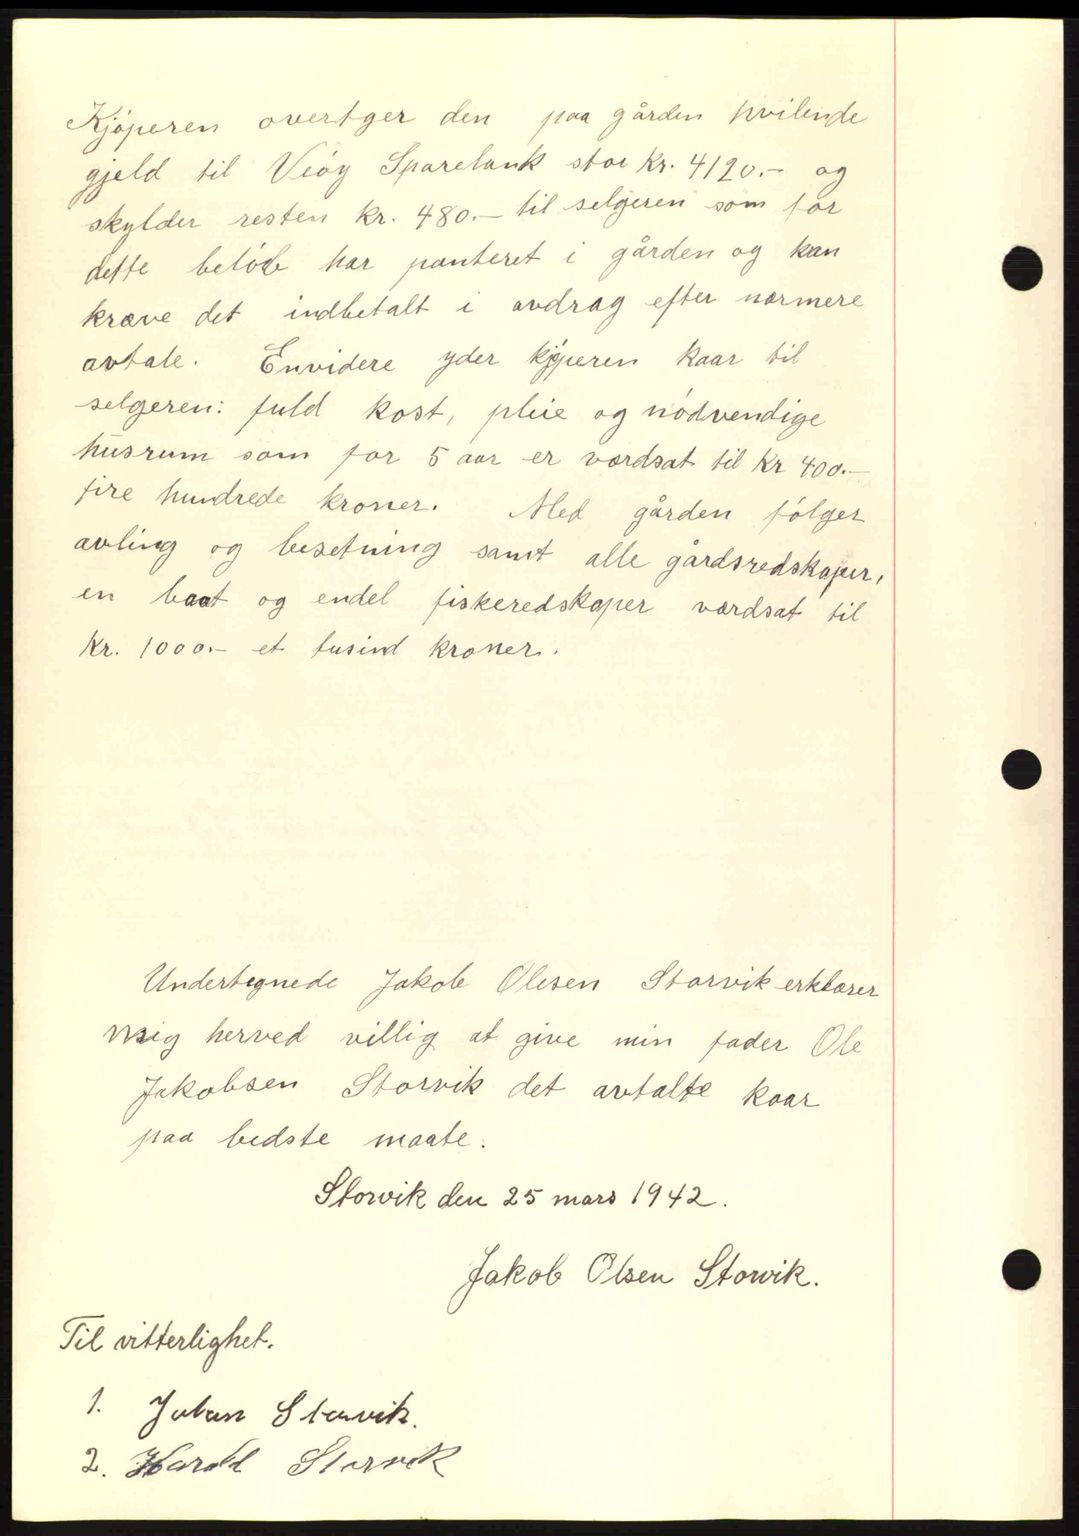 Kjøperen overtger den paa gården hvilende
gjeld til Veøy Sparebank stor Kr. 4120.- og
skylder resten kr. 480.- til selgeren som for
dette beløb har panteret i gården og kan
kræve det indbetalt i avdrag efter nærmere
avtale. Envidere yder kjøperen kaar til
selgeren: fuld kost, pleie og nødvendige
husrum som for 5 aar er værdsat til Kr 400.-
fire hundrede kroner. Med gården følger
avling og besetning samt alle gårdsredskaper,
en baat og endel fiskeredskaper værdsat til
Kr. 1000.- et tusind kroner.
Undertegnede Jakob Olesen Storvik erklærer
mig herved villig at give min fader Ole
Jakobsen Storvik det avtalte kaar
paa bedste maate.
Storvik den 25 mars 1942.
Jakob Olsen Storvik.
Til vitterlighet.
1. Johan Storvik.
2. Harald Storvik